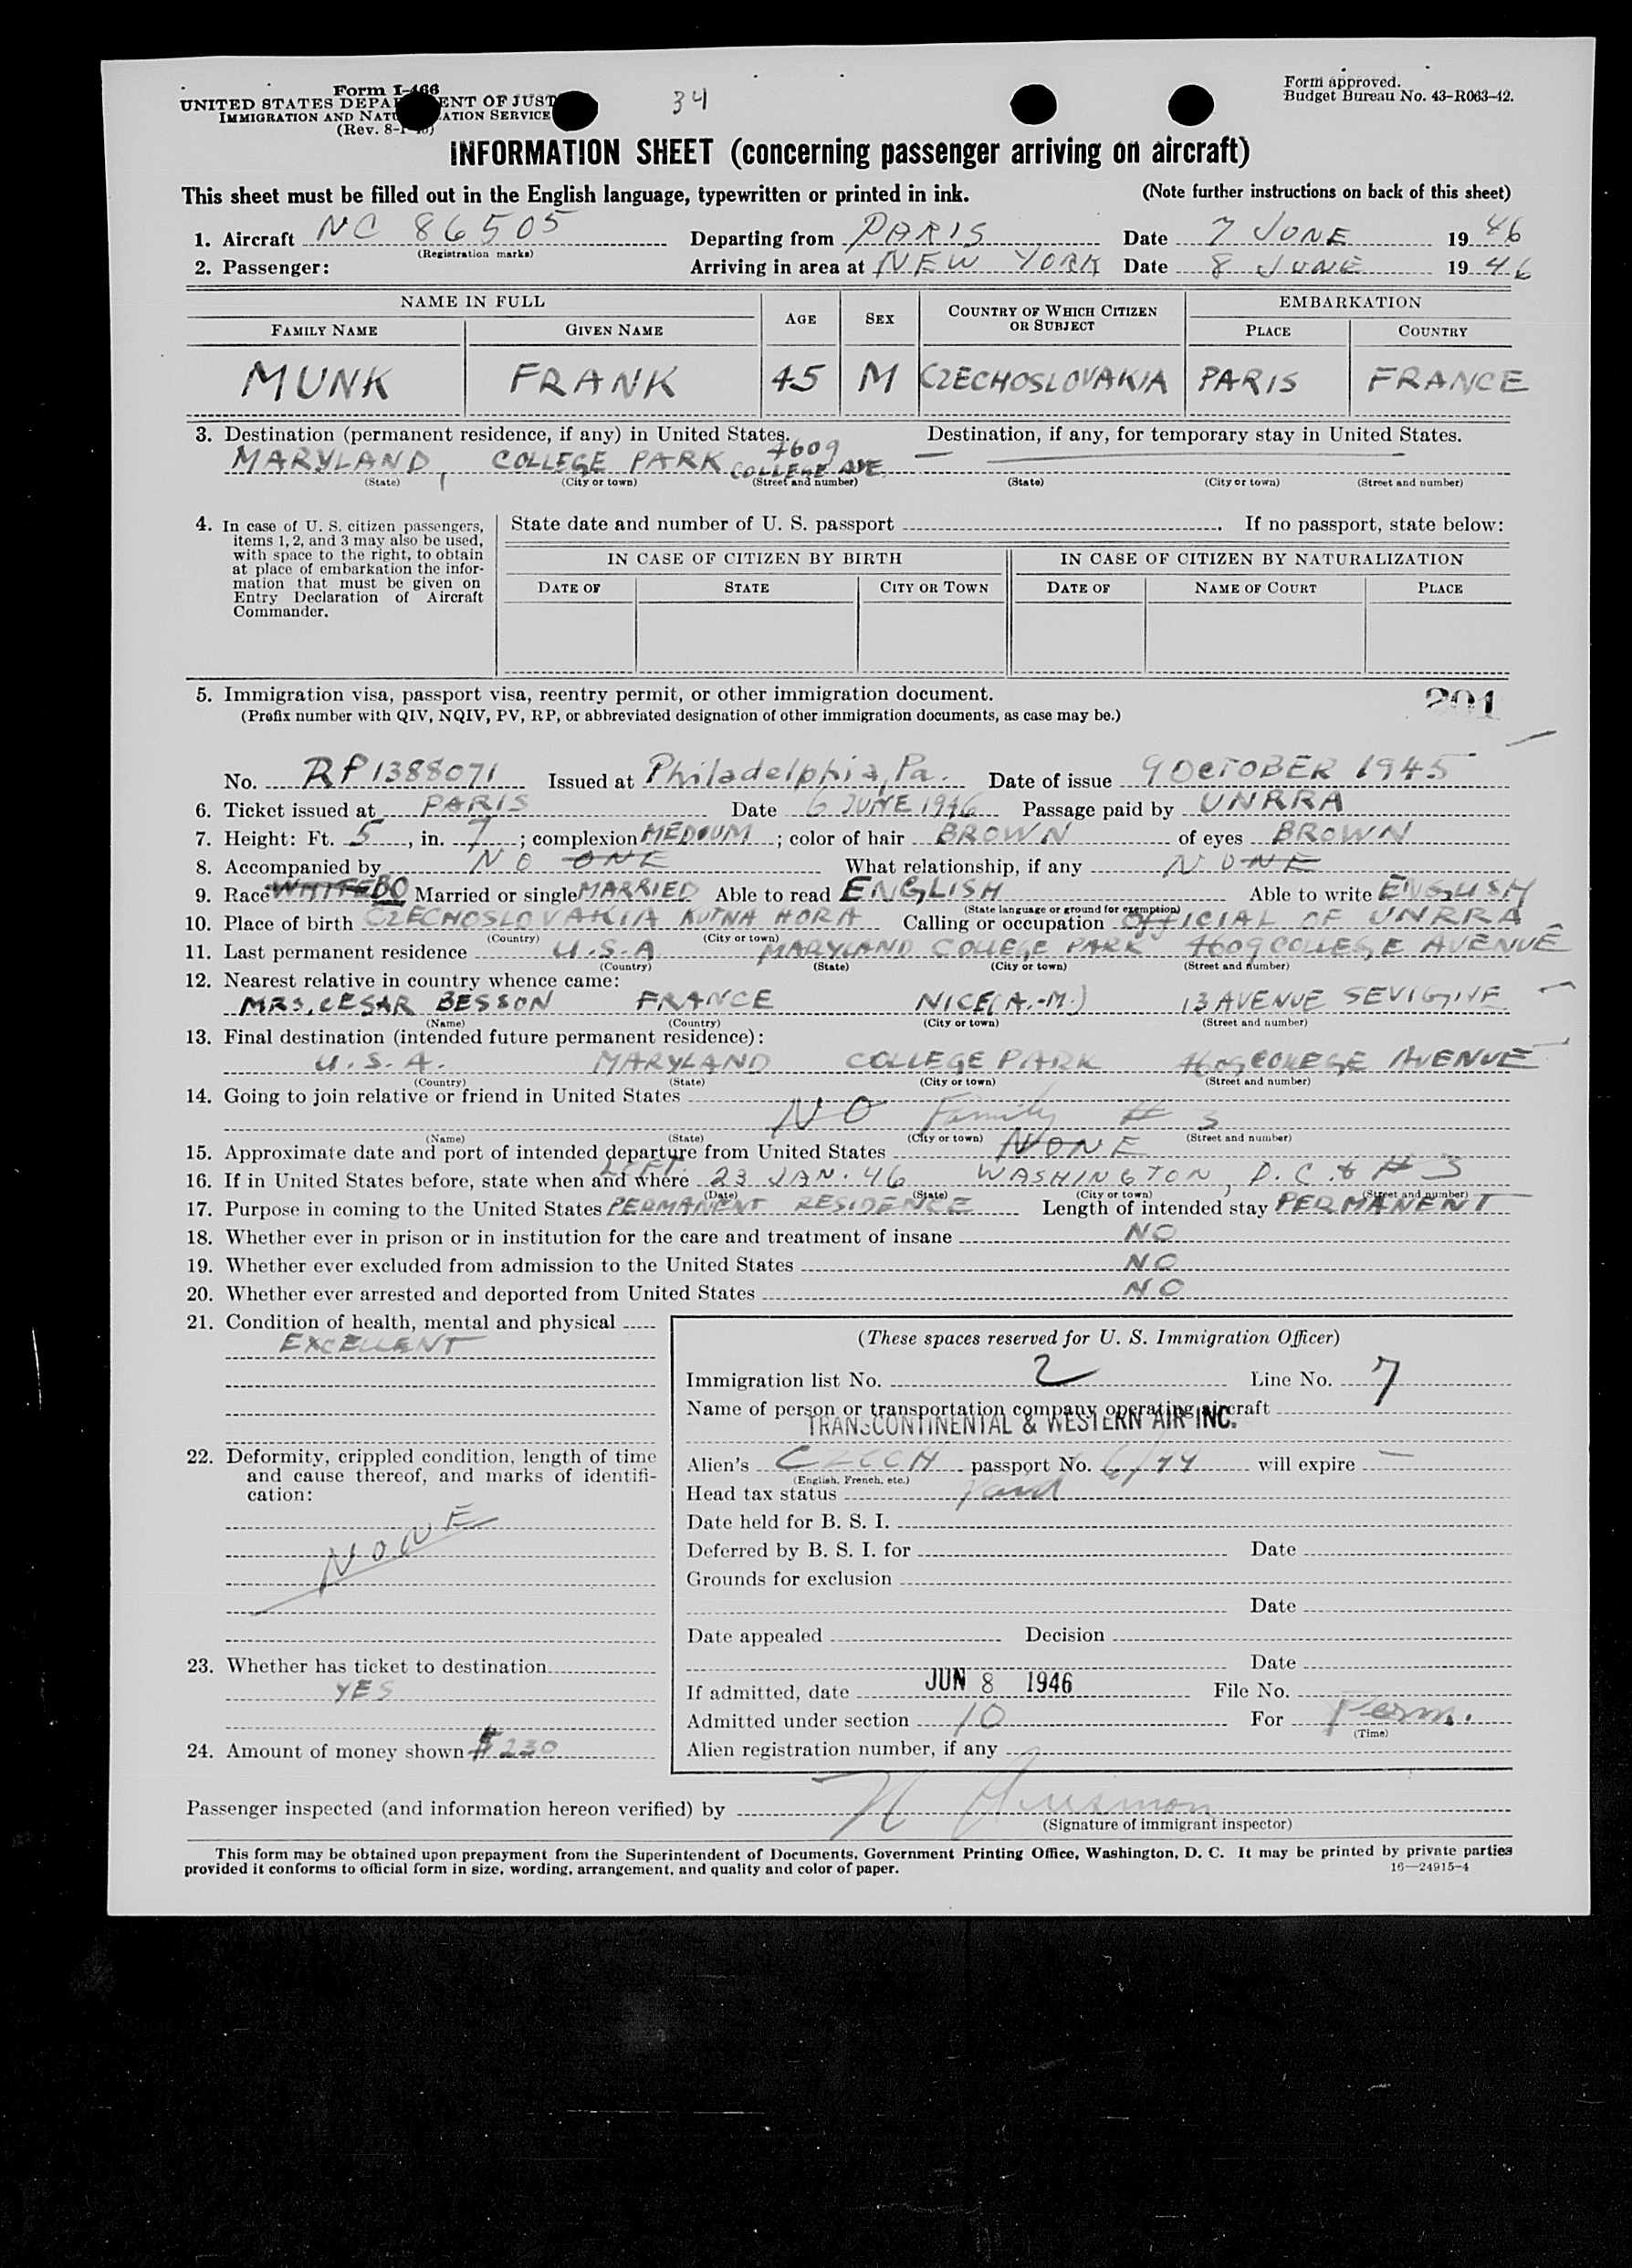 Form I-466
UNITED STATES DEPARTMENT OF JUSTICE
IMMIGRATION AND NATURALIZATION SERVICE
(Rev. 8-1-45)
34
Form approved.
Budget Bureau No. 43-R063-42.
INFORMATION SHEET (concerning passenger arriving on aircraft)
This sheet must be filled out in the English language, typewritten or printed in ink. (Note further instructions on back of this sheet)
1. Aircraft NC 86505 Departing from PARIS Date 7 JUNE 1946
(Registration marks)
2. Passenger: Arriving in area at NEW YORK Date 8 JUNE 1946
NAME IN FULL AGE SEX COUNTRY OF WHICH CITIZEN OR SUBJECT EMBARKATION
FAMILY NAME GIVEN NAME PLACE COUNTRY
MUNK FRANK 45 M CZECHOSLOVAKIA PARIS FRANCE
3. Destination (permanent residence, if any) in United States. Destination, if any, for temporary stay in United States.
MARYLAND, COLLEGE PARK 4609 COLLEGE AVE.
(State) (City or town) (Street and number) (State) (City or town) (Street and number)
4. In case of U. S. citizen passengers, items 1, 2, and 3 may also be used, with space to the right, to obtain at place of embarkation the information that must be given on Entry Declaration of Aircraft Commander.
State date and number of U. S. passport . If no passport, state below:
IN CASE OF CITIZEN BY BIRTH IN CASE OF CITIZEN BY NATURALIZATION
DATE OF STATE CITY OR TOWN DATE OF NAME OF COURT PLACE
5. Immigration visa, passport visa, reentry permit, or other immigration document.
(Prefix number with QIV, NQIV, PV, RP, or abbreviated designation of other immigration documents, as case may be.)
201
No. RP1388071 Issued at Philadelphia, Pa. Date of issue 9 OCTOBER 1945
6. Ticket issued at PARIS Date 6 JUNE 1946 Passage paid by UNRRA
7. Height: Ft. 5, in. 7; complexion MEDIUM; color of hair BROWN of eyes BROWN
8. Accompanied by NO ONE What relationship, if any NONE
9. Race WHITE BO Married or single MARRIED Able to read ENGLISH Able to write ENGLISH
(State language or ground for exemption)
10. Place of birth CZECHOSLOVAKIA KUTNA HORA Calling or occupation OFFICIAL OF UNRRA
(Country) (City or town)
11. Last permanent residence U.S.A MARYLAND COLLEGE PARK 4609 COLLEGE AVENUE
(Country) (State) (City or town) (Street and number)
12. Nearest relative in country whence came:
MRS. CESAR BESSON FRANCE NICE (A.-M.) 13 AVENUE SEVIGNE
(Name) (Country) (City or town) (Street and number)
13. Final destination (intended future permanent residence):
U.S.A. MARYLAND COLLEGE PARK 4609 COLLEGE AVENUE
(Country) (State) (City or town) (Street and number)
14. Going to join relative or friend in United States
NO Family # 3
(Name) (State) (City or town) (Street and number)
15. Approximate date and port of intended departure from United States NONE
16. If in United States before, state when and where LEFT: 23 JAN. 46 WASHINGTON, D.C. & # 3
(Date) (State) (City or town) (Street and number)
17. Purpose in coming to the United States PERMANENT RESIDENCE Length of intended stay PERMANENT
18. Whether ever in prison or in institution for the care and treatment of insane NO
19. Whether ever excluded from admission to the United States NO
20. Whether ever arrested and deported from United States NO
21. Condition of health, mental and physical
EXCELLENT
22. Deformity, crippled condition, length of time and cause thereof, and marks of identification:
NONE
23. Whether has ticket to destination
YES
24. Amount of money shown $230
(These spaces reserved for U. S. Immigration Officer)
Immigration list No. 2 Line No. 7
Name of person or transportation company operating aircraft
TRANSCONTINENTAL & WESTERN AIR INC.
Alien's CZECH passport No. 6/74 will expire —
(English, French, etc.)
Head tax status Paid
Date held for B. S. I.
Deferred by B. S. I. for Date
Grounds for exclusion
Date
Date appealed Decision
Date
If admitted, date JUN 8 1946 File No.
Admitted under section 10 For Perm.
(Time)
Alien registration number, if any
Passenger inspected (and information hereon verified) by
(Signature of immigrant inspector)
This form may be obtained upon prepayment from the Superintendent of Documents, Government Printing Office, Washington, D. C. It may be printed by private parties
provided it conforms to official form in size, wording, arrangement, and quality and color of paper. 16—24915-4